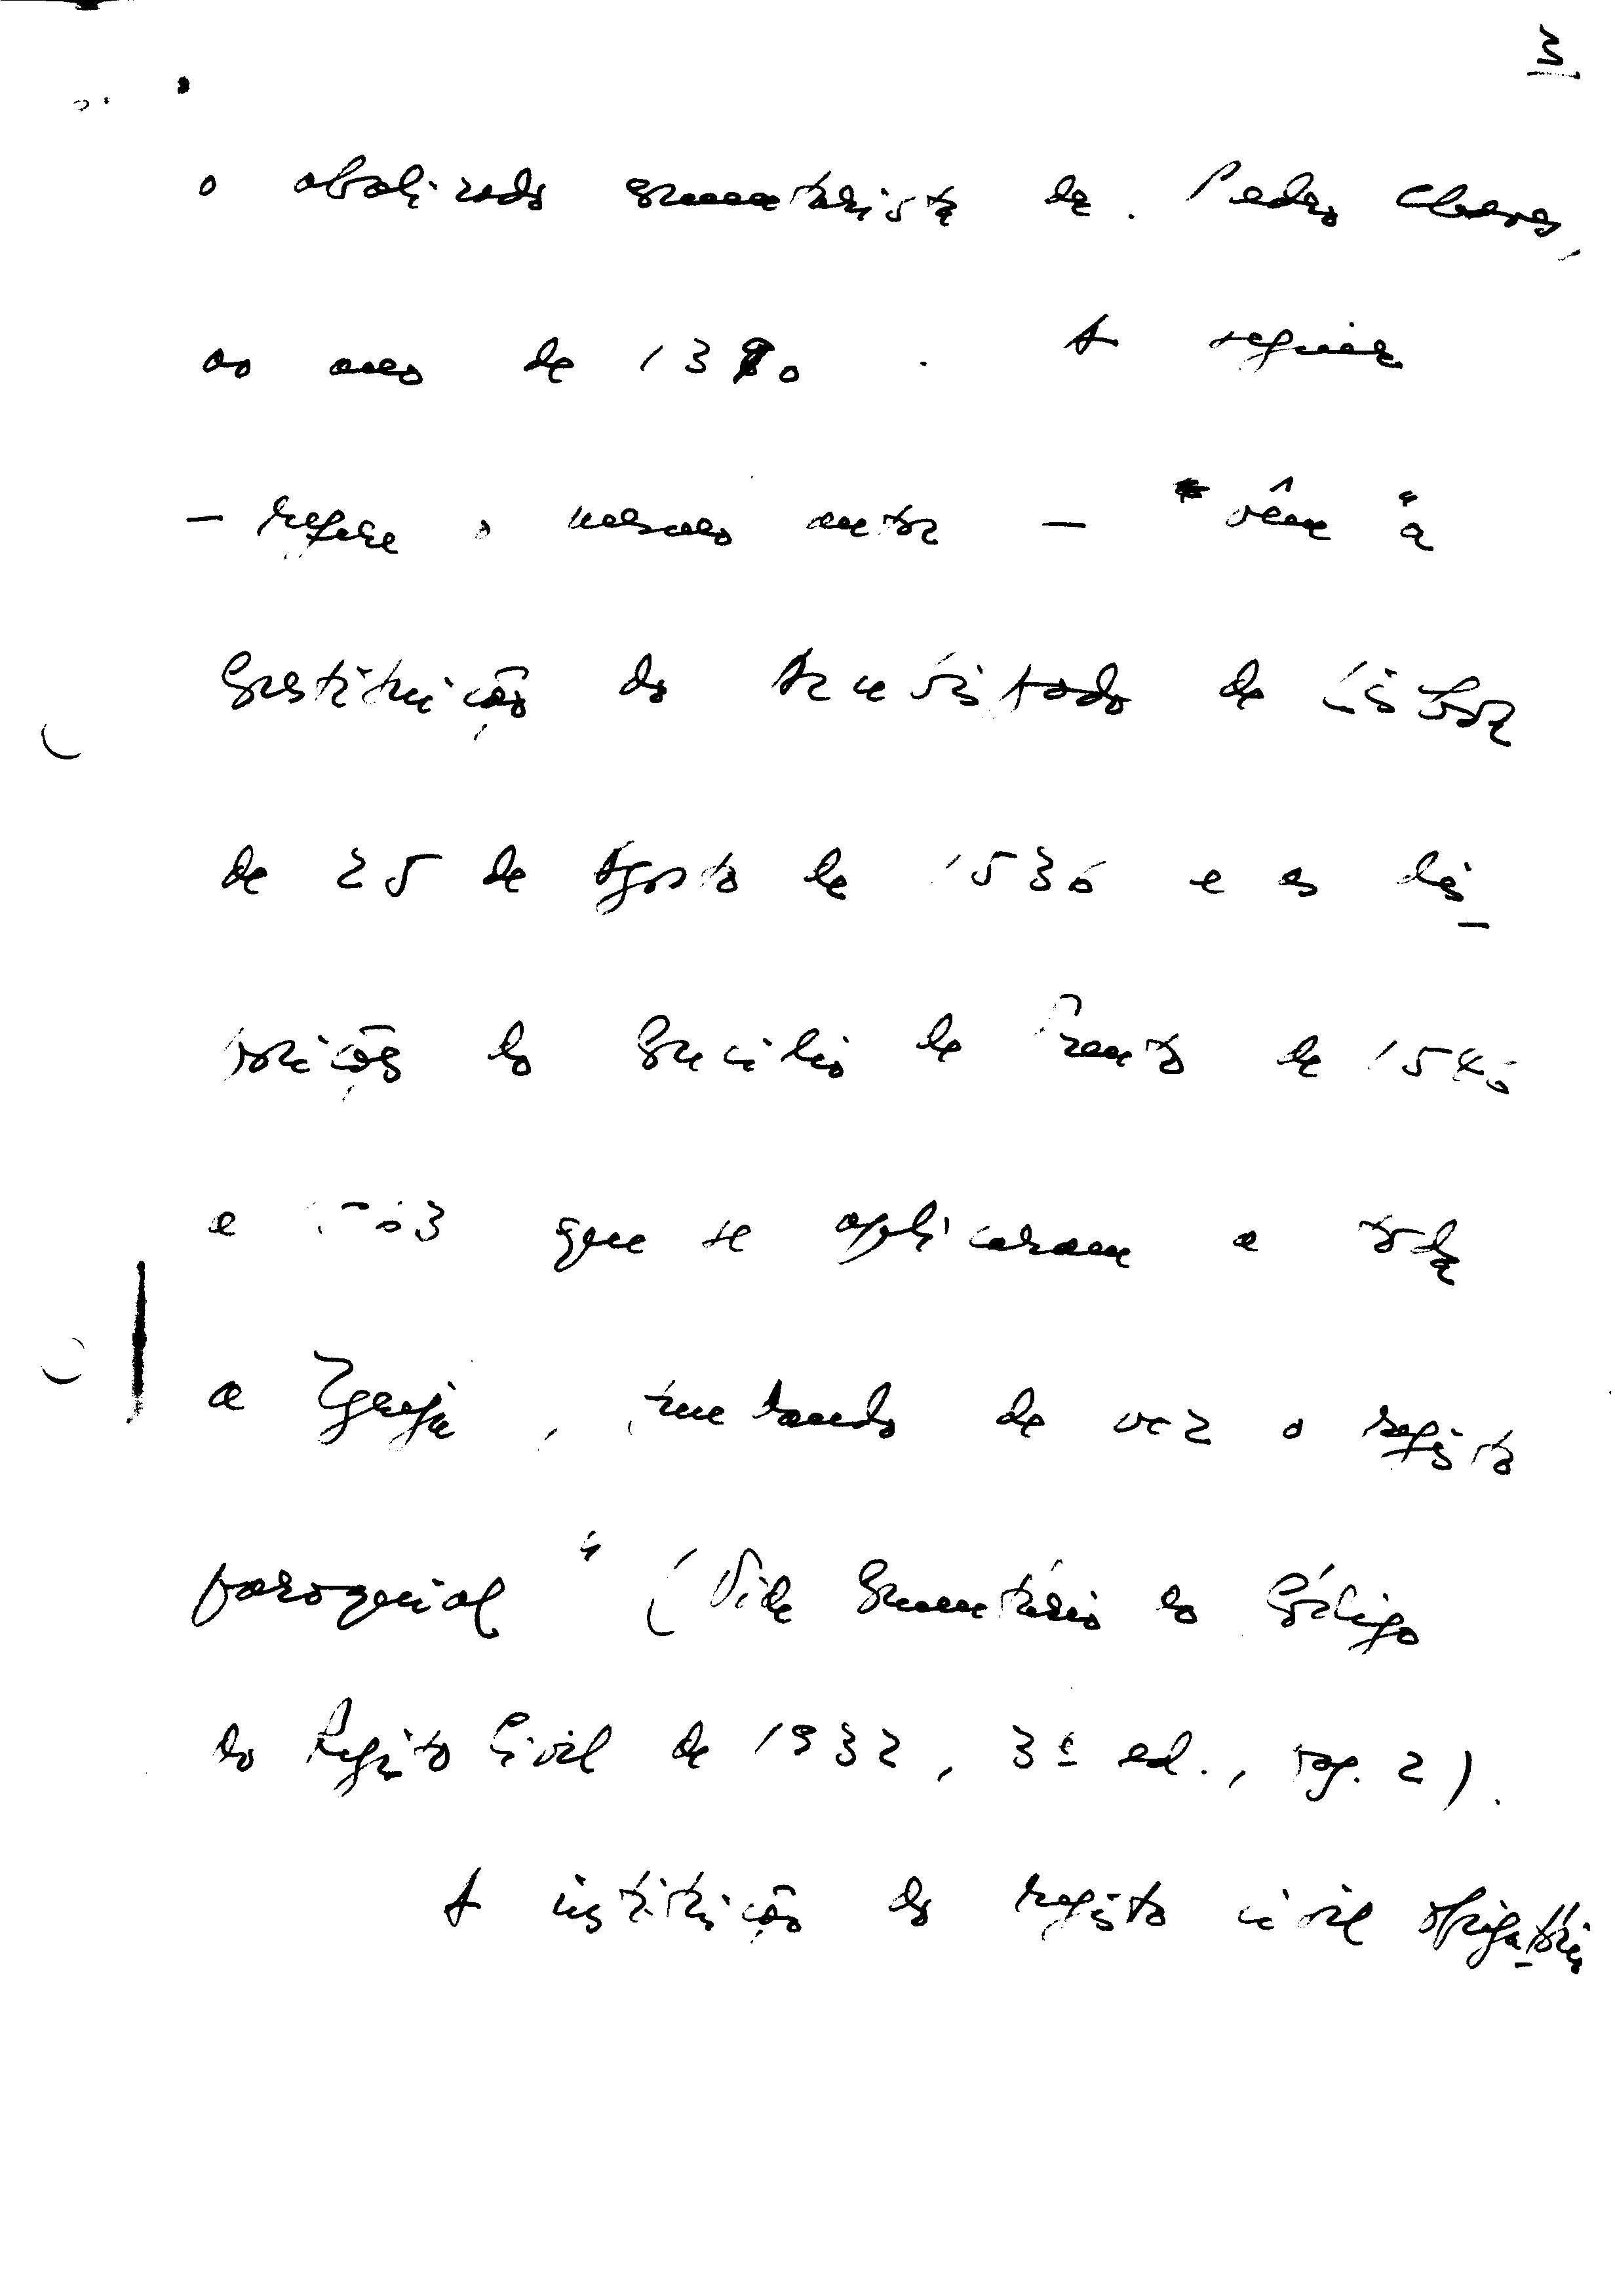 3
o abalizado comentarista dr. Pedro Chaves,
ao ano de 1390. A seguir
— refere o mesmo autor — "vêm a
Constituição do Arcebispado de Lisboa
de 25 de Agosto de 1536 e as dis-
posições do Concílio de Trento de 1545
e 1563 que se aplicaram a toda
a Igreja, implantando de vez o registo
paroquial" (Vide Comentário ao Código
do Registo Civil de 1932, 3ª ed., pag. 2).
A instituição do registo civil obrigatório